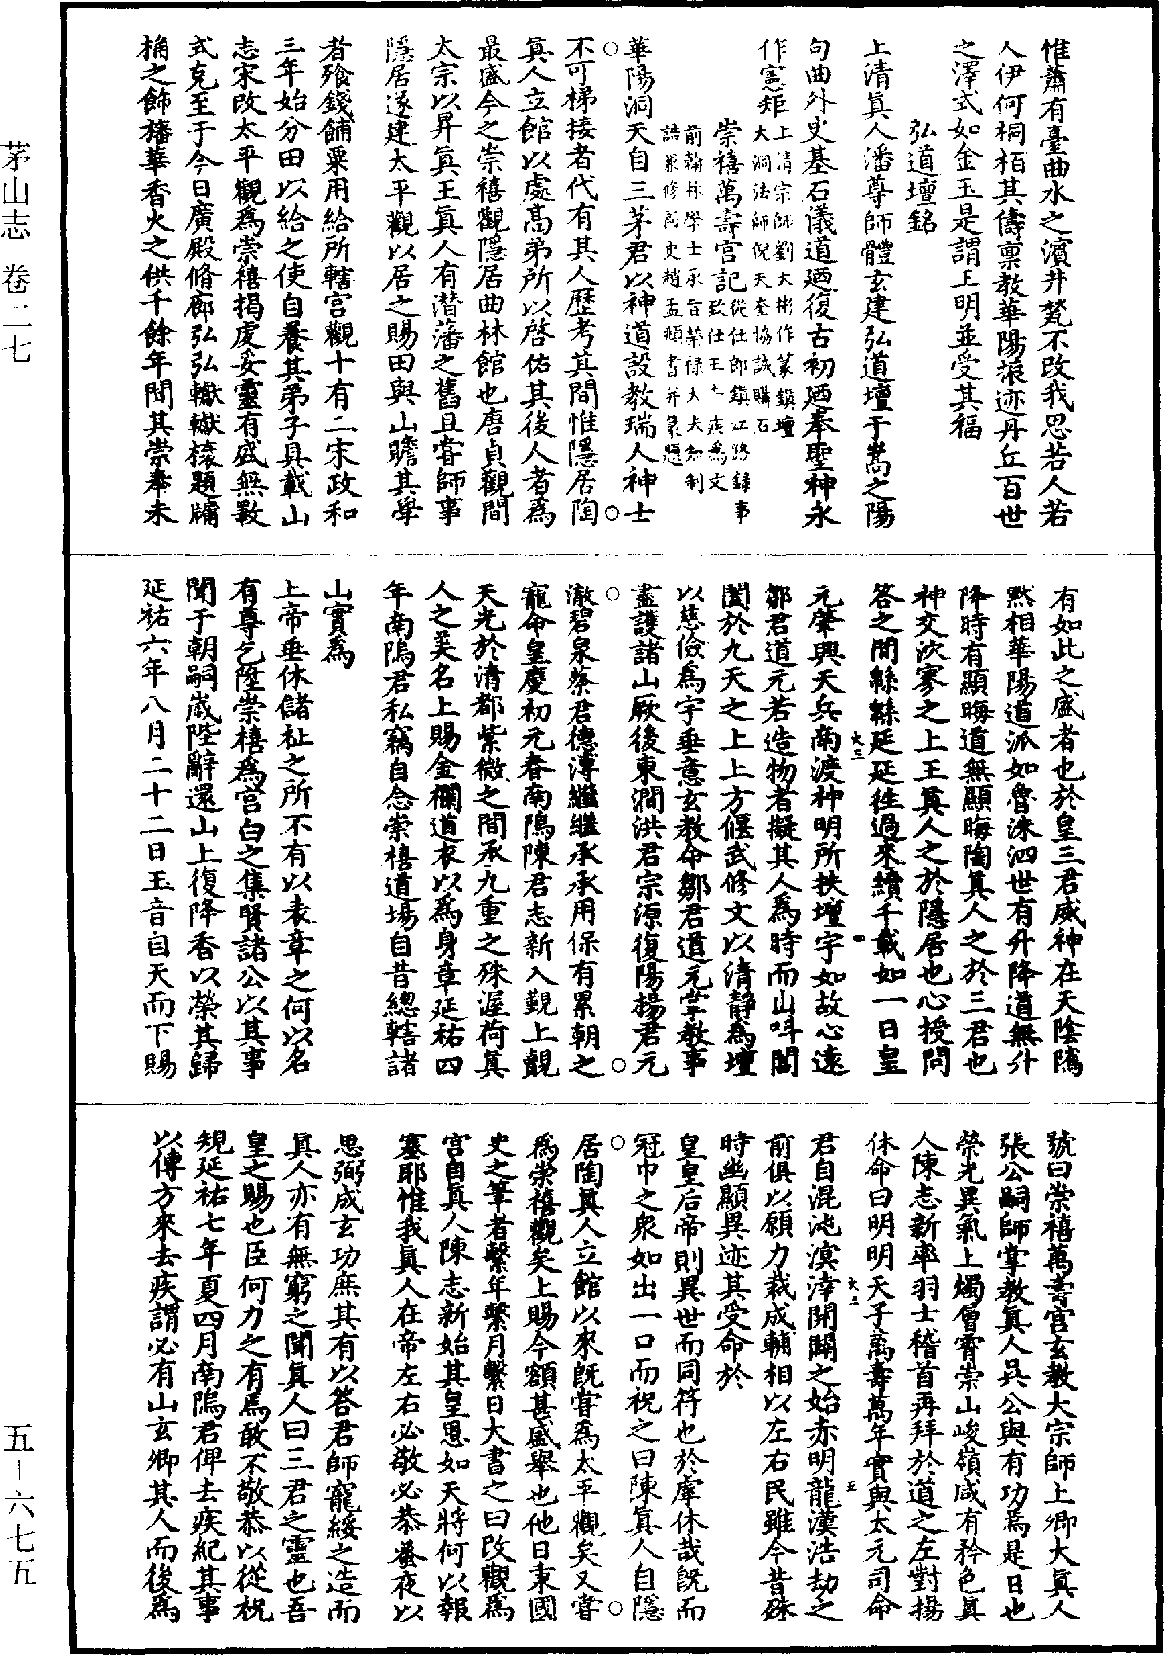 惟蕭有臺曲水之濱井甃不改我思若人若
人伊何桐栢其儔稟教華陽振迹丹丘百世
之澤式如金玉是謂上明並受其福
弘道壇銘
上清眞人潘尊師體玄建弘道壇于嵩之陽
句曲外史基石儀道廼復古初廼奉聖神永
作憲矩
上清宗師劉大彬作篆鎮壇
大洞法師倪天奎協誠購石
崇禧萬壽宮記
從仕郎鎮江路錄事
致仕王去疾爲文
前翰林學士承旨榮祿大夫知制
誥兼修國史趙孟頫書并篆題
華陽洞天自三茅君以神道設教瑞人神士
不可梯接者代有其人歷考其間惟隱居陶
眞人立館以處高弟所以啓佑其後人者爲
最盛今之崇禧觀隱居曲林館也唐貞觀間
太宗以昇眞王眞人有潛藩之舊且甞師事
隱居遂建太平觀以居之賜田與山贍其學
者飱錢餔粟用給所轄宮觀十有二宋政和
三年始分田以給之使自養其弟子具載山
志宋改太平觀爲崇禧揭虔妥靈有盛無斁
式克至于今日廣殿脩廊弘弘轍轍榱題牗
桷之飾旛華香火之供千餘年間其崇奉未
有如此之盛者也於皇三君威神在天陰隲
黙相華陽道派如魯洙泗世有升降道無升
降時有顯晦道無顯晦陶眞人之於三君也
神交沈寥之上王眞人之於隱居也心授問
答之間緜緜延延徃過來續千載如一日皇
元肇興天兵南渡神明所扶壇宇如故心遠
鄒君道元若造物者擬其人爲時而山呌閶
闔於九天之上上方偃武修文以清靜爲壇
以慈儉爲宇垂意玄教命鄒君道元掌教事
盡護諸山厥後東澗洪君宗源復陽揚君元
澈碧泉蔡君德溥繼繼承承用保有累朝之
寵命皇慶初元春南隖陳君志新入覲上覿
天光於清都紫微之間承九重之殊渥荷眞
人之美名上賜金襴道衣以爲身章延祐四
年南隖君私竊自念崇禧道場自昔總轄諸
山實爲
上帝垂休儲祉之所不有以表章之何以名
有尊乞陞崇禧爲宮白之集賢諸公以其事
聞于朝嗣歲陛辭還山上復降香以榮其歸
延祐六年八月二十二日玉音自天而下賜
號曰崇禧萬壽宮玄教大宗師上卿大眞人
張公嗣師掌教眞人吳公與有功焉是日也
榮光異氣上燭層霄崇山峻嶺咸有矜色眞
人陳志新率羽士稽首再拜於道之左對揚
休命曰明明天子萬壽萬年實與太元司命
君自混沌溟涬開闢之始赤明龍漢浩劫之
前俱以願力裁成輔相以左右民雖今昔殊
時幽顯異迹其受命於
皇皇后帝則異世而同符也於虖休哉旣而
冠巾之衆如出一口而祝之曰陳眞人自隱
居陶眞人立館以來旣甞爲太平觀矣又甞
爲崇禧觀矣上賜今額甚盛舉也他日秉國
史之筆者繫年繫月繫日大書之曰改觀爲
宮自眞人陳志新始其皇恩如天將何以報
塞耶惟我眞人在帝左右必敬必恭蚤夜以
思弼成玄功庶其有以答君師寵綏之造而
眞人亦有無窮之聞眞人曰三君之靈也吾
皇之賜也臣何力之有焉敢不敬恭以從祝
規延祐七年夏四月南隖君俾去疾紀其事
以傳方來去疾謂必有山玄卿其人而後爲
茅山志 卷二七
五—六七五